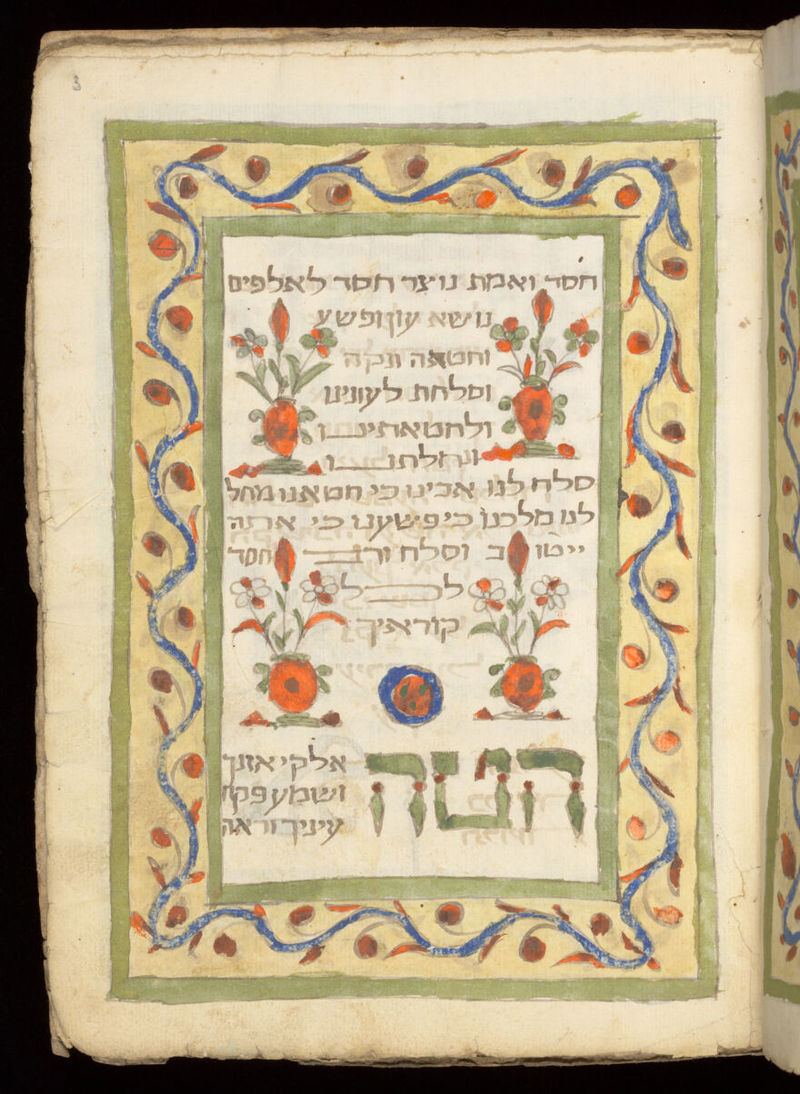 3
חסד ואמת נוצר חסד לאלפים
נושא עון ופשע
וחטאה ונקה
וסלחת לעונינו
ולחטאתינו
ונחלתנו
סלח לנו אבינו כי חטאנו מחל
לנו מלכנו כי פשענו כי אתה
ייטוב וסלח ורב חסד
לכל
קוראיך
הטה
אלקי אזנך
ושמע פקח
עיניך וראה